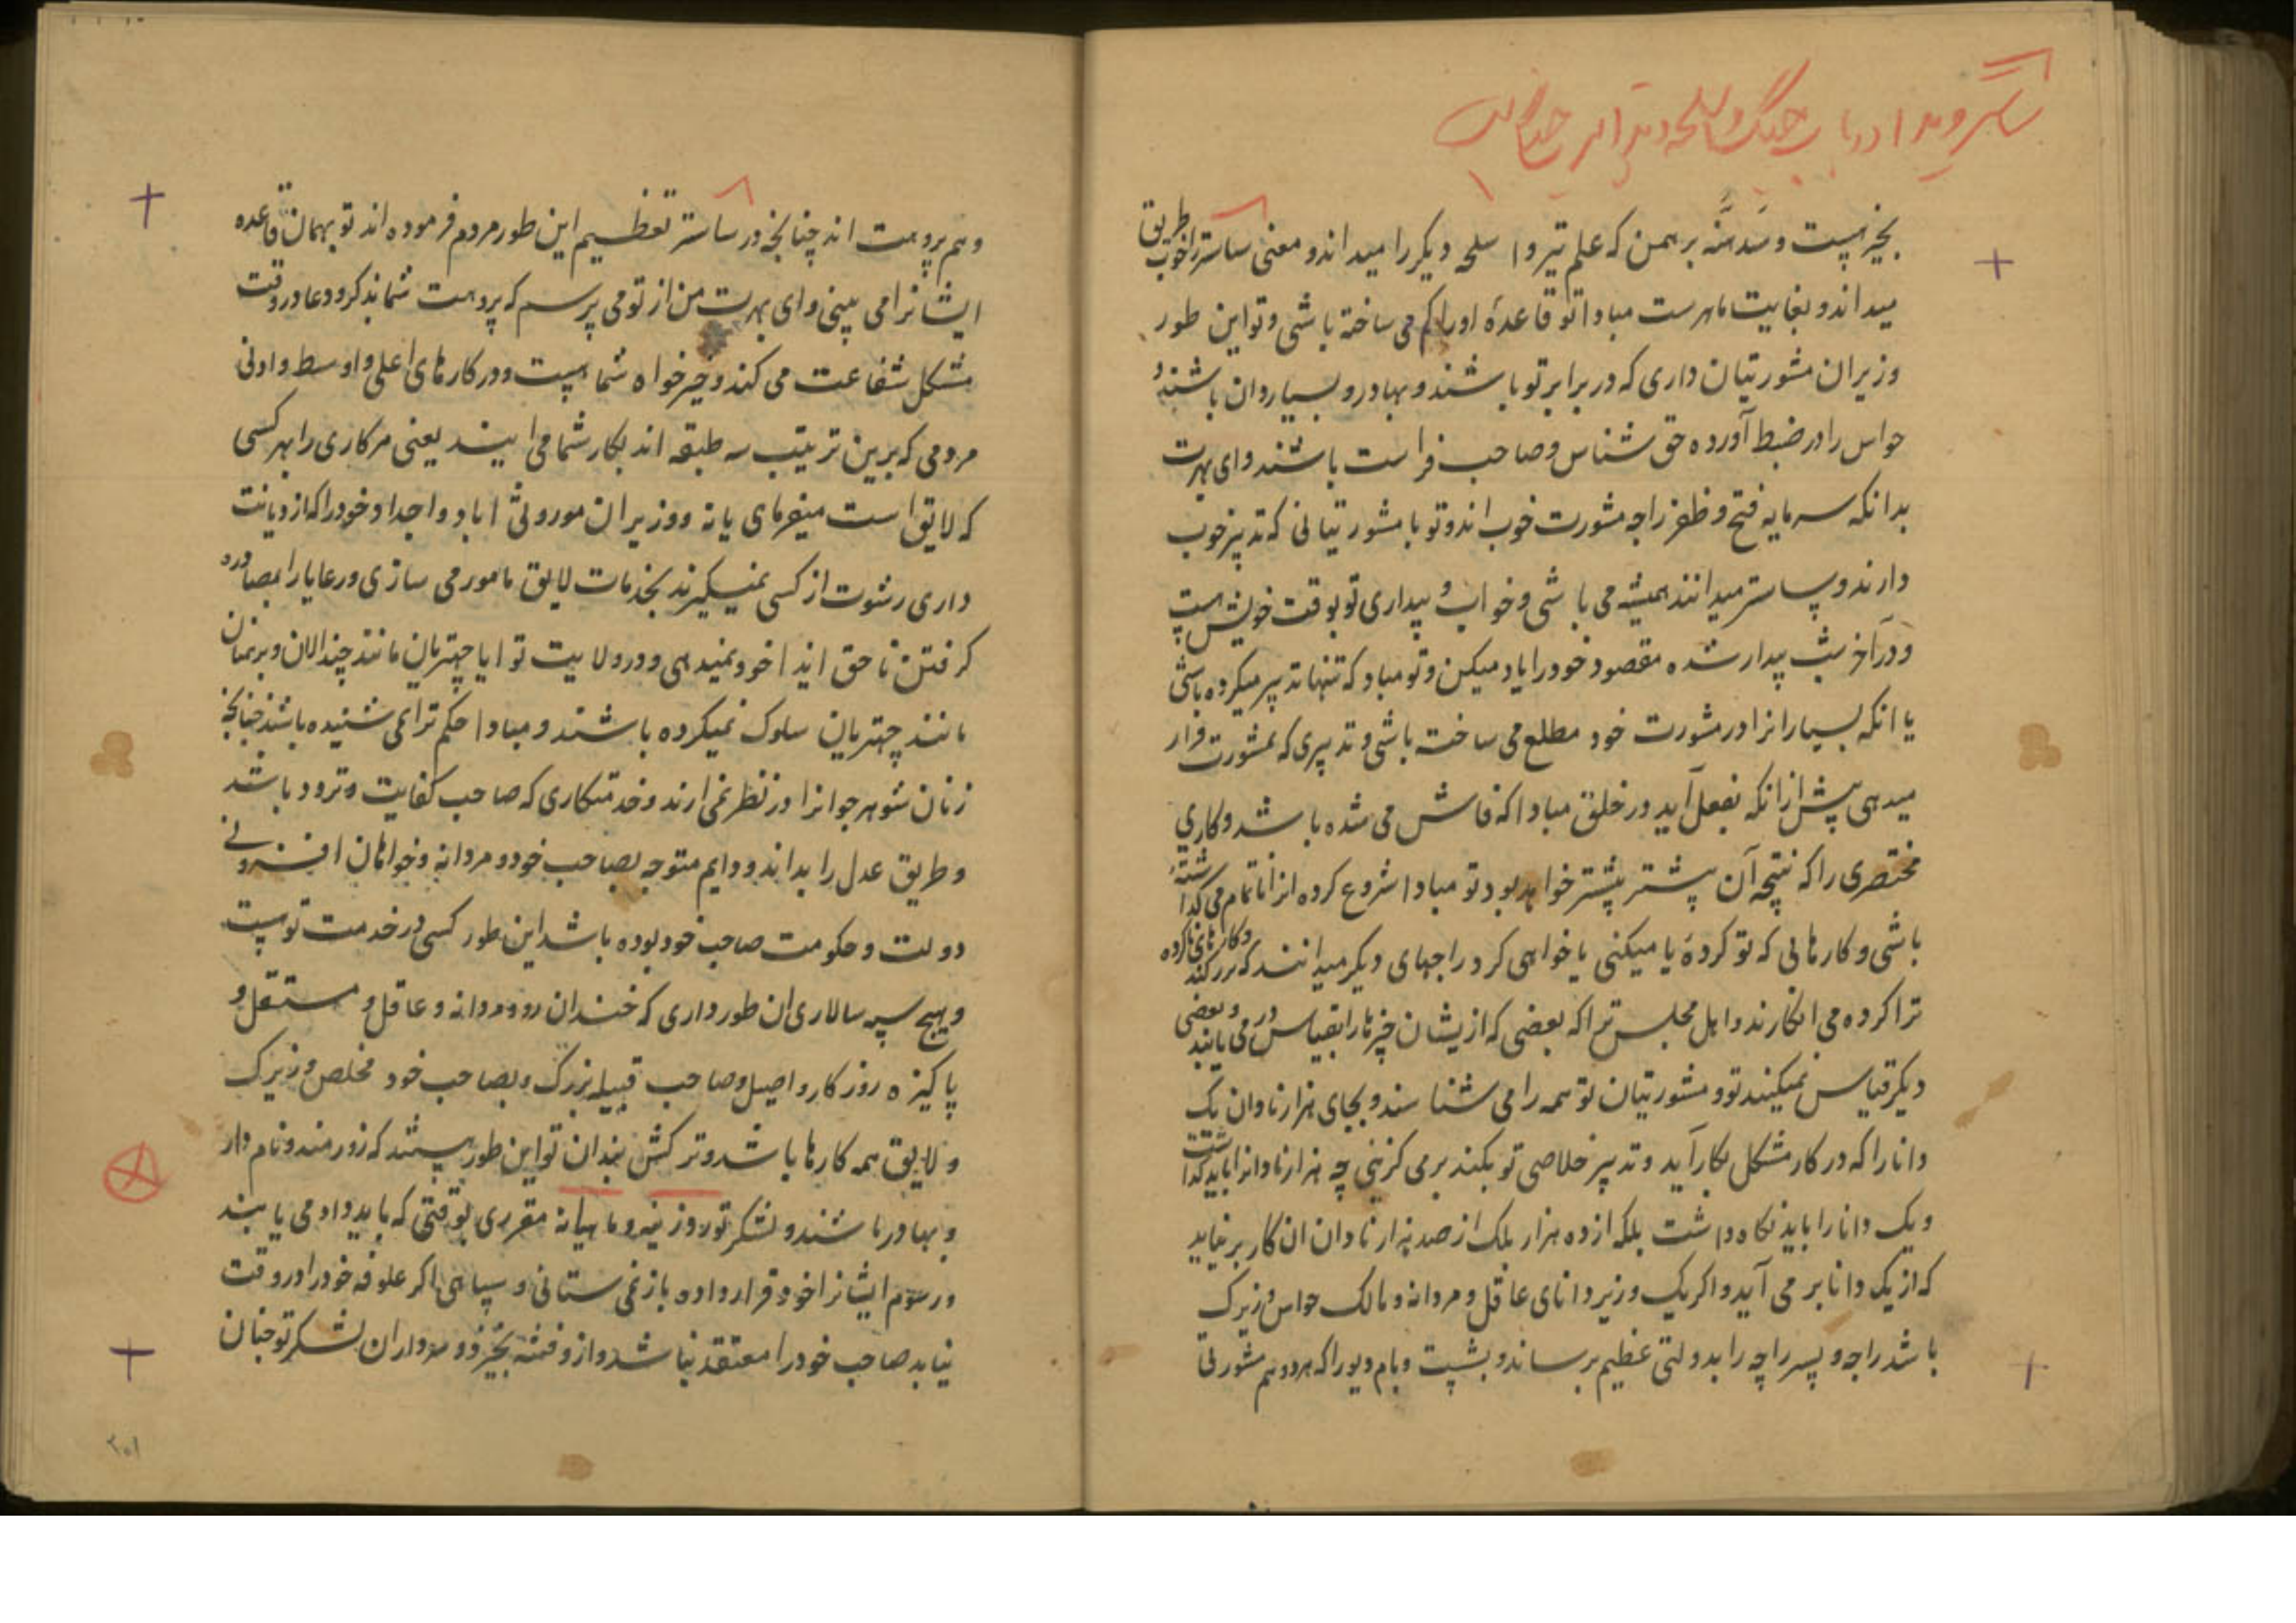 بخیر هست و سدهنه برهمن که علم تیر و اسلحه دیکر را میداند و معنی ساستر را خوب طریق
میداند و بغایت ماهرست مبادا تو قاعدهٔ او را کم می ساخته باشی و تو این طور
وزیران مشورتیان داری که در برابر تو باشند و بهادر و بسیار دان باشند و
حواس را در ضبط آورده حق شناس و صاحب فراست باشند و ای بهرت
بدانکه سرمایه فتح و ظفر راجه مشورت خوب اند و تو با مشورتیانی که تدبیر خوب
دارند و ساستر میدانند همیشه می باشی و خواب و بیداری تو بوقت خویش هست
و در آخر شب بیدار شده مقصود خود را یاد میکن و تو مباد که تنها تدبیر میکرده باشی
یا انکه بسیارانرا در مشورت خود مطلع می ساخته باشی و تدبیری که بمشورت قرار
میدهی پیش از انکه بفعل آید در خلق مبادا که فاش می شده باشد و کاری
مختصری را که نتیجه آن پیشتر بیشتر خواهد بود تو مبادا شروع کرده انرا ناتمام می کذاشته
باشی و کارهائی که تو کردهٔ یا میکنی یا خواهی کرد راجهای دیکر میدانند که
ترا کرده می انکارند و اهل مجلس ترا که بعضی که از یشان چیزها را بقیاس در می یابند و بعضی
دیکر قیاس نمیکنند تو و مشورتیان تو همه را می شناسند و بجای هزار نادان یک
دانا را که در کار مشکل بکار آید و تدبیر خلاصی تو بکند بر می کزینی چه هزار نادانرا باید کذاشت
و یک دانا را باید نکاه داشت بلکه از ده هزار بلک از صد هزار نادان ان کار بر نیاید
که از یک دانا بر می آید و اکر یک وزیر دانای عاقل و مردانه و مالک حواس و زیرک
باشد راجه و پسر راجه را بدولتی عظیم برساند و بشپت و بام دیو را که هر دو هم مشورتی
و هم پروهت اند چنانجه در ساستر تعظیم این طور مردم فرموده اند تو بهمان قاعده
ایشانرا می بینی و ای بهرت من از تو می پرسم که پروهت شما بذکر و دعا در وقت
مشکل شفاعت می کند و خیر خواه شما هست و در کارهای اعلی و اوسط و ادنی
مردمی که برین ترتیب سه طبقه اند بکار شما می ایند یعنی هر کاری را بهر کسی
که لایق است میفرمای یا نه و وزیران موروثی اباد و اجداد خود را که از دیانت
داری رشوت از کسی نمیکیرند بخدمات لایق مامور می سازی و رعایا را بمصادره
کرفتن نا حق ایذا خود نمیدهی و در ولایت تو ایا چهتریان مانند چندالان و برهمنان
مانند چهتریان سلوک نمیکرده باشند و مبادا حکم ترا نمی شنیده باشند چنانجه
زنان شوهر جوانرا در نظر نمی ارند و خدمتکاری که صاحب کفایت و تردد باشد
و طریق عدل را بداند و دایم متوجه بصاحب خود و مردانه و خواهان افزونے
دولت و حکومت صاحب خود بوده باشد این طور کسی در خدمت تو هست
و هیچ سپه سالاری ان طور داری که خندان رو و مردانه و عاقل و مستقل و
پاکیزه روزکار و اصیل و صاحب قبیله بزرک و بصاحب خود مخلص و زیرک
و لایق همه کارها باشد و ترکش بندان تو این طور هستند که زورمند و نام دار
و بهادر باشند و لشکر تو روزینه و ماهیانه مقرری بوقتی که باید داد می یابند
و رسوم ایشانرا خود قرار داده باز نمی ستانی و سپاهی اکر علوفه خود را در وقت
نیابد صاحب خود را معتقد نباشد و از و فتنه بخیزد و سرداران لشکر تو چنان
۳۰۱